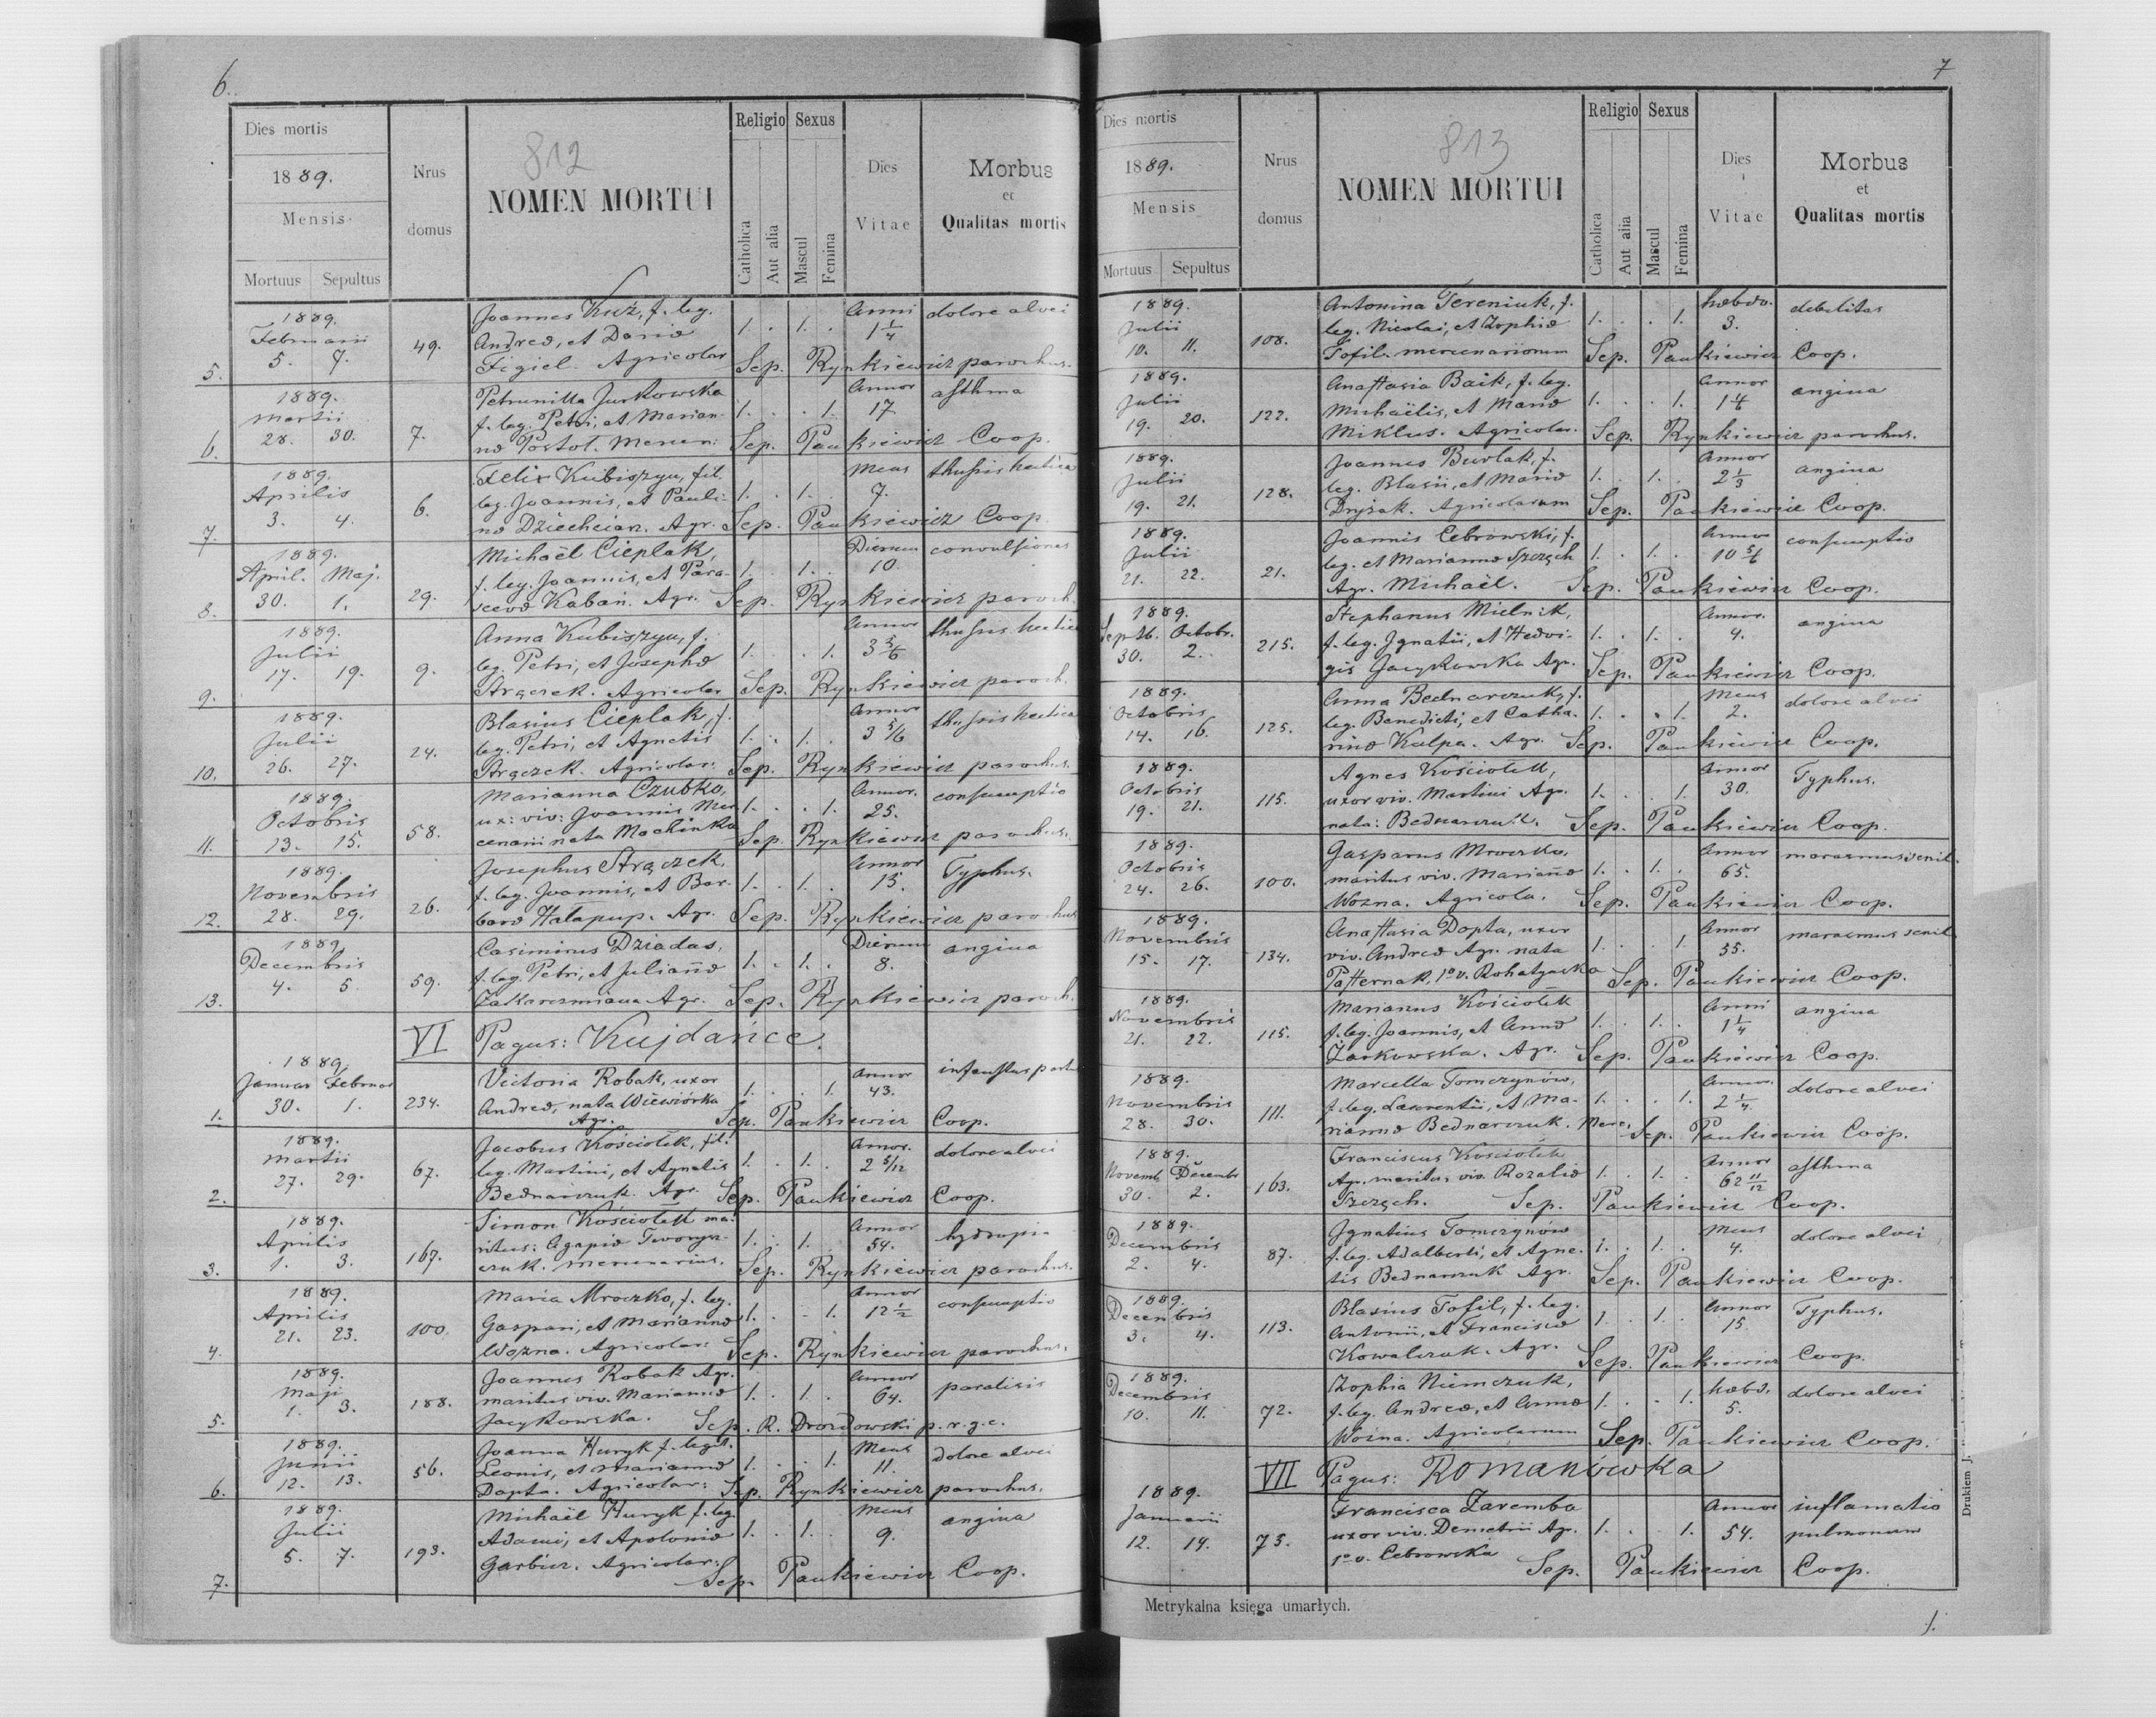 6.
812
Dies mortis
1889.
Mensis
Mortuus Sepultus
Nrus domus
NOMEN MORTUI
Religio
Catholica
Aut alia
Sexus
Mascul
Femina
Dies Vitae
Morbus
et
Qualitas mortis
5. 1889. Februarii 5. 7. 49.
Joannes Kuź, f. leg. 1. 1. Anni 1 1/4 dolore alvei
Andreæ, et Dariæ
Figiel. Agricolar Sep. Rynkiewicz parochus.
6. 1889. Martii 28. 30. 7.
Petrunilla Jurkowska 1. 1. Annor 17. asthma
f. leg. Petri, et Marian-
næ Postoł. Mercen: Sep. Paukiewicz Coop.
7. 1889. Aprilis 3. 4. 6.
Felix Kubiszyn, fil. 1. 1. Mens 7. thussis hectica
leg. Joannis, et Pauli-
næ Dziechciar. Agr. Sep. Paukiewicz Coop
8. 1889. April. Maj. 30. 1. 29.
Michaël Cieplak, 1. 1. Dierum 10. convulsiones
f. leg. Joannis, et Para-
scevæ Kaban. Agr. Sep. Rynkiewicz paroch.
9. 1889. Julii 17. 19. 9.
Anna Kubiszyn, f. 1. 1. Annor 3 5/6 thussis hectica
leg. Petri, et Josephæ
Strączek. Agricolar Sep. Rynkiewicz paroch.
10. 1889. Julii 26. 27. 24.
Blasius Cieplak, f. 1. 1. Annor 3 5/6 thussis hectica
leg. Petri, et Agnetis
Strączek. Agricolar: Sep. Rynkiewicz parochus.
11. 1889. Octobris 13. 15. 58.
Marianna Czubko, 1. 1. Annor. 25. consumptio
ux: viv: Joannis Mer
cenarii nata Machinka Sep. Rynkiewicz parochus.
12. 1889. Novembris 28. 29. 26.
Josephus Strączek, 1. 1. Annor 15. Typhus.
f. leg. Joannis, et Bar-
baræ Hałapup. Agr. Sep. Rynkiewicz parochus
13. 1889. Decembris 4. 5 59.
Casimirus Dziadas, 1. 1. Dierum 8. angina
f. leg. Petri, et Juliannæ
Agr. Sep. Rynkiewicz paroch.
VI Pagus: Kujdańce.
1. 1889. Januar Februar 30. 1. 234.
Victoria Robak, uxor 1. 1. Annor 43. infaustus partu
Andreæ, nata Wiewiórka
Agr. Sep. Paukiewicz Coop.
2. 1889. Martii 27. 29. 67.
Jacobus Kościołek, fil. 1. 1. Annor. 2 5/12 dolore alvei
leg. Martini, et Agnetis
Bednarczuk. Agr. Sep. Paukiewicz Coop.
3. 1889. Aprilis 1. 3. 167.
Simon Kościołek ma- 1. 1. Annor 54. hydropis
ritus: Agapiæ
czuk. mercenarius. Sep. Rynkiewicz parochus.
4. 1889. Aprilis 21. 23. 100.
Maria Mroczko, f. leg. 1. 1. Annor 12 1/2 consumptio
Gaspari, et Mariannæ
Wozna. Agricolar: Sep. Rynkiewicz parochus.
5. 1889. Maji 1. 3. 188.
Joannes Robak Agr. 1. 1. Annor 64. paralisis
maritus viv. Mariannæ
Jacykowska. Sep. R. Drozdowski p. r. g. c.
6. 1889. Junii 12. 13. 56.
Joanna Huryk f. legit. 1. 1. Mens 11. dolore alvei
Leonis, et Mariannæ
Dopta. Agricolar: Sep. Rynkiewicz parochus.
7. 1889. Julii 5. 7. 193.
Michaël Huryk f. leg. 1. 1. Mens 9. angina
Adami, et Apoloniæ
Garbicz. Agricolar: Sep. Paukiewicz Coop.
7
813
Dies mortis
1889.
Mensis
Mortuus Sepultus
Nrus domus
NOMEN MORTUI
Religio
Catholica
Aut alia
Sexus
Mascul
Femina
Dies Vitae
Morbus
et
Qualitas mortis
1889. Julii 10. 11. 108.
Antonina Tereniuk, f. 1. 1. hebdo. 3. debilitas
leg. Nicolai, et Zophiæ
Tofil. mercenariorum Sep. Paukiewicz Coop.
1889. Julii 19. 20. 122.
Anastasia Baik, f. leg. 1. 1. Annor 1 4/6 angina
Michaëlis, et Mariæ
Miklus. Agricolar. Sep. Rynkiewicz parochus.
1889. Julii 19. 21. 128.
Joannes Burlak, f. 1. 1. Annor 2 1/3 angina
leg. Blasii, et Mariæ
Dryżak. Agricolarum Sep. Paukiewicz Coop.
1889. Julii 21. 22. 21.
Joannis Cebrowski, f. 1. 1. Annor 10 5/6 consumptio
leg. et Mariannæ Szczęch
Agr. Michaël. Sep. Paukiewicz Coop.
1889. Septb. Octobr. 30. 2. 215.
Stephanus Mielnik, 1. 1. Annor. 4. angina
f. leg. Ignatii, et Hedvi-
gis Jacykowska Agr. Sep. Paukiewicz Coop.
1889. Octobris 14. 16. 125.
Anna Bednarczuk, f. 1. 1. Mens 2. dolore alvei
leg. Benedicti, et Catha-
rinæ Kulpa. Agr. Sep. Paukiewicz Coop.
1889. Octobris 19. 21. 115.
Agnes Kościołek, 1. 1. Annor 30. Typhus.
uxor viv. Martini Agr.
nata: Bednarczuk. Sep. Paukiewicz Coop.
1889. Octobris 24. 26. 100.
Gasparus Mroczko, 1. 1. Annor 65. marasmus senil.
maritus viv. Mariannæ
Wozna. Agricola. Sep. Paukiewicz Coop.
1889. Novembris 15. 17. 134.
Anastasia Dopta, uxor 1. 1. Annor 55. marasmus senil
viv. Andreæ Agr. nata
Pasternak, 1º v. Rohatynska Sep. Paukiewicz Coop.
1889. Novembris 21. 22. 115.
Marianus Kościołek 1. 1. Anni 1 1/4 angina
f. leg. Joannis, et Annæ
Żarkowska. Agr. Sep. Paukiewicz Coop.
1889. Novembris 28. 30. 111.
Marcella Tomczynów, 1. 1. Annor. 2 1/4. dolore alvei
f. leg. Laurentii, et Ma-
riannæ Bednarczuk. Merc. Sep. Paukiewicz Coop.
1889. Novemb Decembr 30. 2. 163.
Franciscus Kościołek 1. 1. Annor 62 11/12 asthma
Agr. maritus viv. Rozaliæ
Szczęch. Sep. Paukiewicz Coop.
1889. Decembris 2. 4. 87.
Ignatius Tomczynów 1. 1. Mens 4. dolore alvei
f. leg. Adalberti, et Agne-
tis Bednarczuk Agr. Sep. Paukiewicz Coop.
1889. Decembris 3. 4. 113.
Blasius Tofil, f. leg. 1. 1. Annor 15. Typhus.
Antonii, et Franciscæ
Kowalczuk. Agr. Sep. Paukiewicz Coop.
1889. Decembris 10. 11. 72.
Zophia Niemczuk, 1. 1. hebd. 5. dolore alvei
f. leg. Andreæ, et Annæ
Woźna. Agricolarum Sep. Paukiewicz Coop.
VII Pagus: Romanówka
1889. Januarii 12. 14. 75.
Francisca Zaremba 1. 1. Annor 54. inflamatio
uxor viv. Demetrii Agr. pulmonum
1º v. Cebrowska Sep. Paukiewicz Coop.
Metrykalna księga umarłych.
Drukiem J.
1.